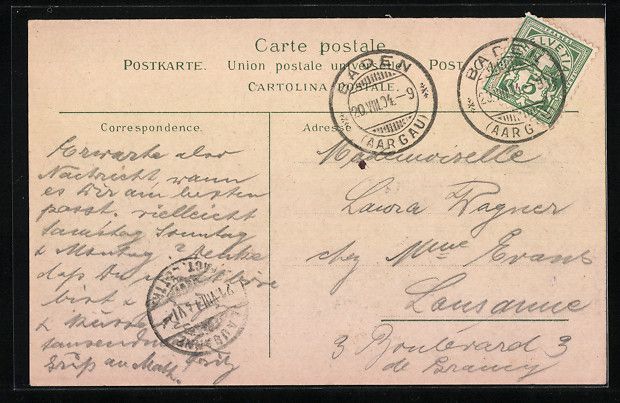 Carte postale.
POSTKARTE. Union postale universelle. POST
CARTOLINA POSTALE.
BADEN
20.VIII.04.-9
(AARGAU)
BADEN
(AARG
HELVETIA
5
Correspondence.
Adresse
Erwarte also
Nachricht wann
es Dir am besten
passt. vielleicht
Samstag Sonntag
& Montag?
daß Du
bist &
& Küsse
tausendmal Fritz
Grüß an Math.
LAUSANNE
Mademoiselle
Laura Wagner
chez Mme Evans
Lausanne
3 Boulevard 3
de Grancy